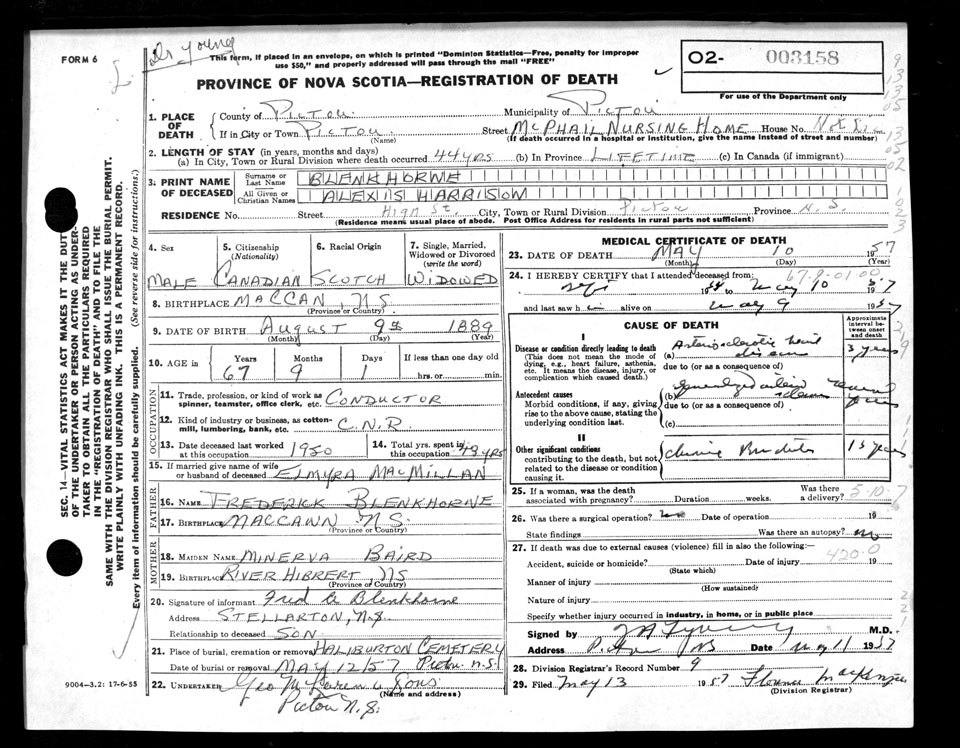 FORM 6
Dr Young
This form, if placed in an envelope, on which is printed "Dominion Statistics—Free, penalty for improper
use $50," and properly addressed will pass through the mail "FREE"
PROVINCE OF NOVA SCOTIA—REGISTRATION OF DEATH
O2- 003158
For use of the Department only
1. PLACE OF DEATH
County of PICTOU Municipality of PICTOU
If in City or Town PICTOU Street MCPHAIL NURSING HOME House No.
(Name) (If death occurred in a hospital or institution, give the name instead of street and number)
2. LENGTH OF STAY (in years, months and days)
(a) In City, Town or Rural Division where death occurred 44 YRS (b) In Province LIFETIME (c) In Canada (if immigrant)
3. PRINT NAME OF DECEASED
Surname or Last Name BLENKHORNE
All Given or Christian Names ALEXIS HARRISON
RESIDENCE No. Street High St. City, Town or Rural Division Pictou Province N.S.
(Residence means usual place of abode. Post Office Address for residents in rural parts not sufficient)
4. Sex MALE
5. Citizenship (Nationality) CANADIAN
6. Racial Origin SCOTCH
7. Single, Married, Widowed or Divorced (write the word) WIDOWED
8. BIRTHPLACE MACCAN, N.S.
(Province or Country)
9. DATE OF BIRTH August 9th 1889
(Month) (Day) (Year)
10. AGE IN Years 67 Months 9 Days 1 If less than one day old
hrs. or min.
OCCUPATION
11. Trade, profession, or kind of work as
spinner, teamster, office clerk, etc. CONDUCTOR
12. Kind of industry or business, as cotton-
mill, lumbering, bank, etc. C.N.R.
13. Date deceased last worked
at this occupation 1950
14. Total yrs. spent in
this occupation YRS
15. If married give name of wife
or husband of deceased ELMYRA MACMILLAN
FATHER
16. NAME FREDERICK BLENKHORNE
17. BIRTHPLACE MACCAWN N.S.
(Province or Country)
MOTHER
18. MAIDEN NAME MINERVA BAIRD
19. BIRTHPLACE RIVER HIBRERT NS
(Province or Country)
20. Signature of informant Fred A Blenkhorne
Address STELLARTON, N.S.
Relationship to deceased SON
21. Place of burial, cremation or removal HALIBURTON CEMETERY
Date of burial or removal MAY 12/57 Pictou N.S.
22. UNDERTAKER Geo M & Sons
(Name and address)
Pictou N.S.
9004-3.2: 17-6-55
MEDICAL CERTIFICATE OF DEATH
23. DATE OF DEATH MAY 10 1957
(Month) (Day) (Year)
24. I HEREBY CERTIFY that I attended deceased from:
67.9-01.00
to May 10 1957
and last saw h alive on May 9 1957
CAUSE OF DEATH
Approximate interval between onset and death
I
Disease or condition directly leading to death
(This does not mean the mode of dying, e.g., heart failure, asthenia, etc. It means the disease, injury, or complication which caused death.)
(a) Arteriosclerotic heart disease 3 years
due to (or as a consequence of)
Antecedent causes
Morbid conditions, if any, giving rise to the above cause, stating the underlying condition last.
(b) Generalized several years
due to (or as a consequence of)
(c)
II
Other significant conditions
contributing to the death, but not related to the disease or condition causing it.
Chronic 15 years
25. If a woman, was the death
associated with pregnancy? Duration weeks. Was there a delivery?
26. Was there a surgical operation? no Date of operation 19
State findings Was there an autopsy? no
27. If death was due to external causes (violence) fill in also the following:—
420.0
Accident, suicide or homicide? Date of injury 19
(State which)
Manner of injury
(How sustained)
Nature of injury
Specify whether injury occurred in industry, in home, or in public place
Signed by M.D.
Address Pictou NS Date May 11 1957
28. Division Registrar's Record Number 9
29. Filed May 13 1957 Florence MacKenzie
(Division Registrar)
SEC. 14—VITAL STATISTICS ACT MAKES IT THE DUTY
OF THE UNDERTAKER OR PERSON ACTING AS UNDER-
TAKER TO OBTAIN ALL THE PARTICULARS REQUIRED
IN THE "REGISTRATION OF DEATH" AND TO FILE THE
SAME WITH THE DIVISION REGISTRAR WHO SHALL ISSUE THE BURIAL PERMIT.
WRITE PLAINLY WITH UNFADING INK. THIS IS A PERMANENT RECORD.
Every item of information should be carefully supplied. (See reverse side for instructions.)